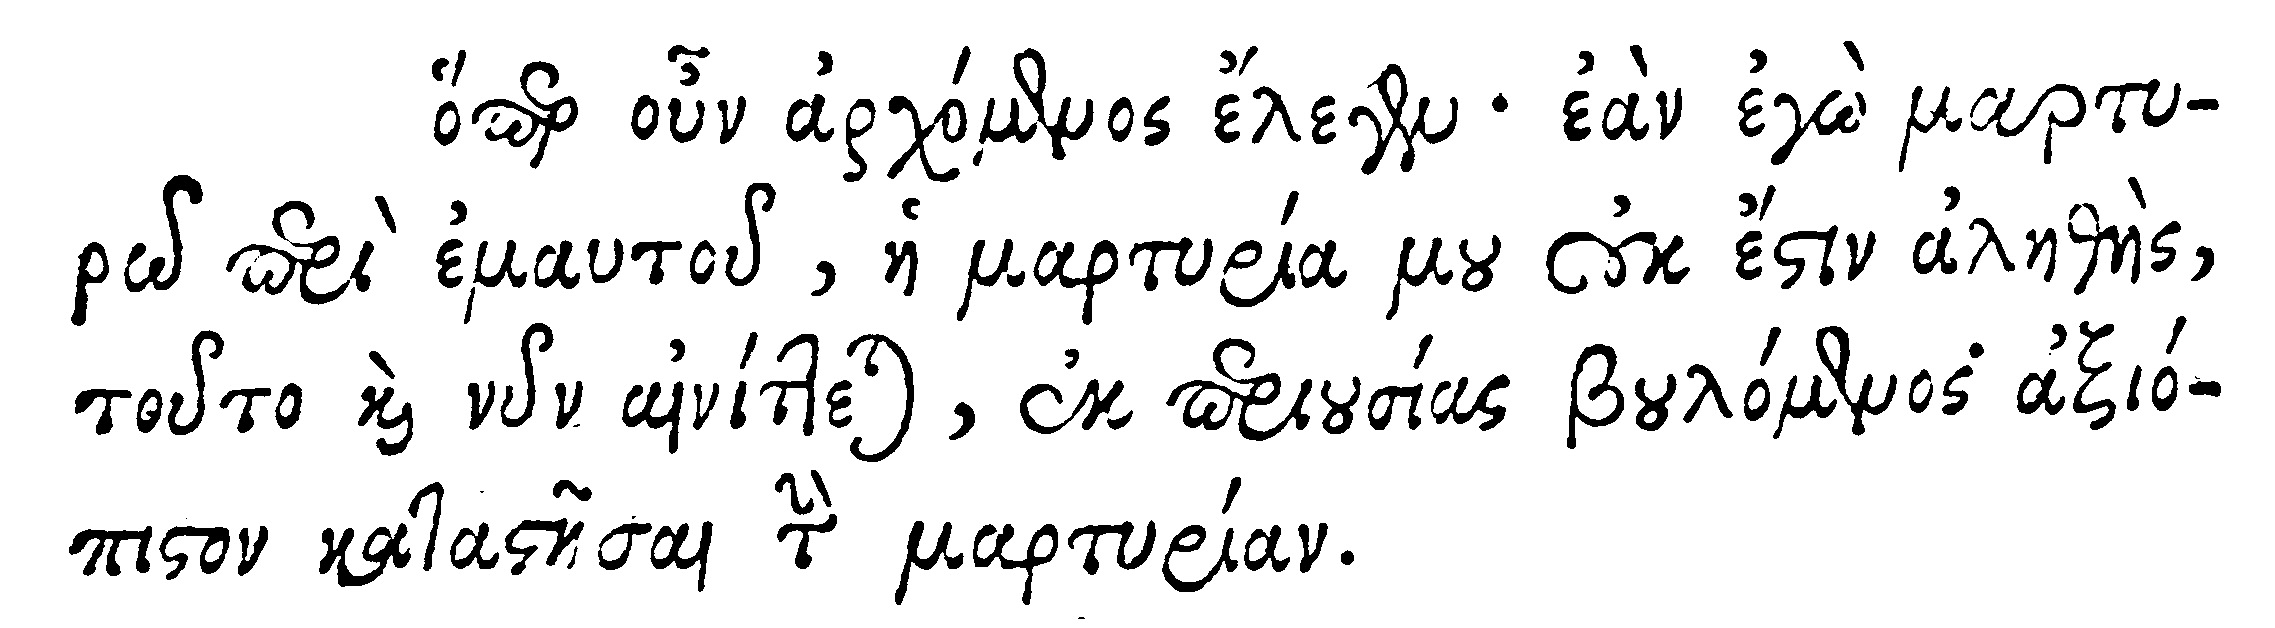 ὅπερ οὖν ἀρχόμενος ἔλεγεν· ἐὰν ἐγὼ μαρτυ-
ρῶ περὶ ἐμαυτοῦ, ἡ μαρτυρία μου οὐκ ἔστιν ἀληθὴς,
τοῦτο καὶ νῦν αἰνίττεται, ἐκ περιουσίας βουλόμενος ἀξιό-
πιστον καταστῆσαι τὴν μαρτυρίαν.